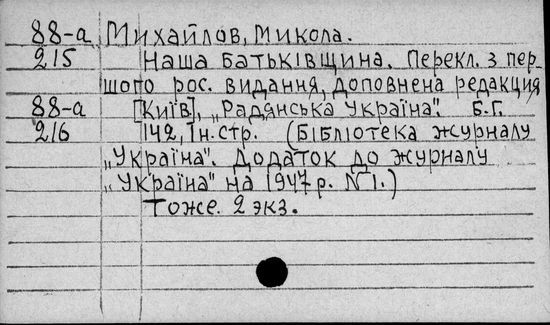 88-а Михайлов, Микола.
215 Наша батьківщина. Перекл. з пер-
шого рос. видання, доповнена редакция
88-а [Київ], „Радянська Україна". Б.Г.
216 142, Ін.стр. (Бібліотека журналу
„Україна". Додаток до журналу
„Україна" на 1947 р. №1.)
Тоже. 2 экз.